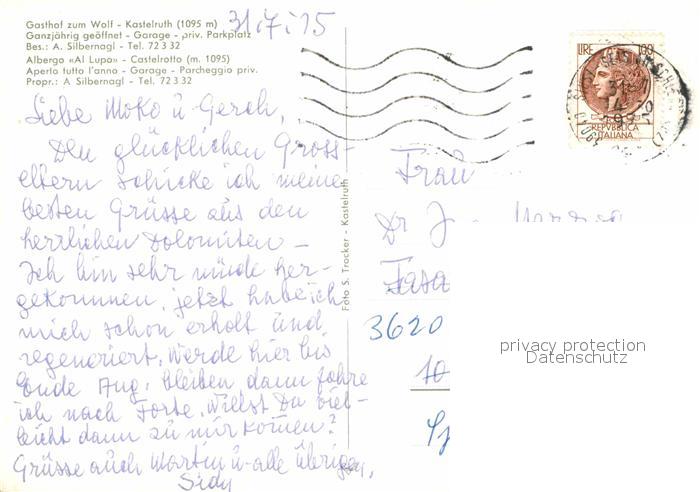 Gasthof zum Wolf - Kastelruth (1095 m)
Ganzjährig geöffnet - Garage - priv. Parkplatz
Bes.: A. Silbernagl - Tel. 72 3 32
Albergo «Al Lupo» - Castelrotto (m. 1095)
Aperto tutto l'anno - Garage - Parcheggio priv.
Propr.: A Silbernagl - Tel. 72 3 32
31.7.75
Liebe Moko u. Gerch,
Den glücklichen Gross-
eltern schicke ich meine
besten Grüsse aus den
herrlichen Dolomiten -
Ich bin sehr müde her-
gekommen, jetzt habe ich
mich schon erholt und
regeneriert. Werde hier bis
Ende Aug. bleiben dann fahre
ich nach Forte. Willst Du viel-
leicht dann zu mir kommen?
Grüsse auch Martin u. alle übrigen,
Foto S. Trocker - Kastelruth
LIRE 100
REPVBBLICA
ITALIANA
Frau
Dr J
3620
10
privacy protection
Datenschutz